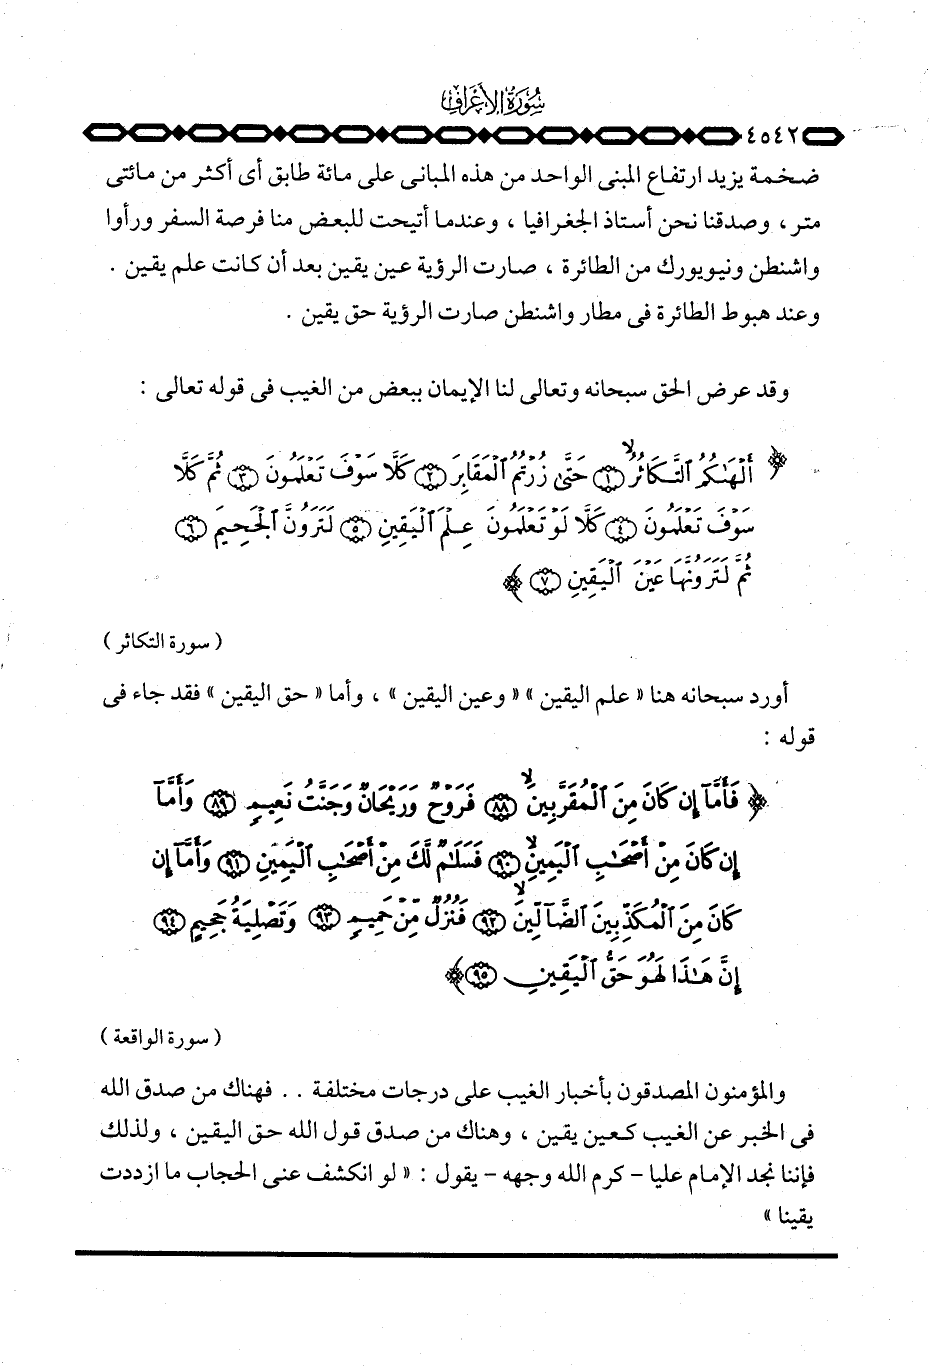 سُورَةُ الأَعْرَافِ
٤٥٤٢
ضخمة يزيد ارتفاع المبنى الواحد من هذه المبانى على مائة طابق أى أكثر من مائتى
متر ، وصدقنا نحن أستاذ الجغرافيا ، وعندما أتيحت للبعض منا فرصة السفر ورأوا
واشنطن ونيويورك من الطائرة ، صارت الرؤية عين يقين بعد أن كانت علم يقين .
وعند هبوط الطائرة فى مطار واشنطن صارت الرؤية حق يقين .
وقد عرض الحق سبحانه وتعالى لنا الإيمان ببعض من الغيب فى قوله تعالى :
﴿ أَلْهَىٰكُمُ ٱلتَّكَاثُرُ ۙ ١ حَتَّىٰ زُرْتُمُ ٱلْمَقَابِرَ ٢ كَلَّا سَوْفَ تَعْلَمُونَ ٣ ثُمَّ كَلَّا
سَوْفَ تَعْلَمُونَ ٤ كَلَّا لَوْ تَعْلَمُونَ عِلْمَ ٱلْيَقِينِ ٥ لَتَرَوُنَّ ٱلْجَحِيمَ ٦
ثُمَّ لَتَرَوُنَّهَا عَيْنَ ٱلْيَقِينِ ٧ ﴾
( سورة التكاثر )
أورد سبحانه هنا « علم اليقين » « وعين اليقين » ، وأما « حق اليقين » فقد جاء فى
قوله :
﴿ فَأَمَّآ إِن كَانَ مِنَ ٱلْمُقَرَّبِينَ ۙ ٨٨ فَرَوْحٌ وَرَيْحَانٌ وَجَنَّتُ نَعِيمٍ ٨٩ وَأَمَّآ
إِن كَانَ مِنْ أَصْحَٰبِ ٱلْيَمِينِ ۙ ٩٠ فَسَلَٰمٌ لَّكَ مِنْ أَصْحَٰبِ ٱلْيَمِينِ ٩١ وَأَمَّآ إِن
كَانَ مِنَ ٱلْمُكَذِّبِينَ ٱلضَّآلِّينَ ۙ ٩٢ فَنُزُلٌ مِّنْ حَمِيمٍ ٩٣ وَتَصْلِيَةُ جَحِيمٍ ٩٤
إِنَّ هَٰذَا لَهُوَ حَقُّ ٱلْيَقِينِ ٩٥ ﴾
( سورة الواقعة )
والمؤمنون المصدقون بأخبار الغيب على درجات مختلفة . . فهناك من صدق الله
فى الخبر عن الغيب كعين يقين ، وهناك من صدق قول الله حق اليقين ، ولذلك
فإننا نجد الإمام عليا - كرم الله وجهه - يقول : « لو انكشف عنى الحجاب ما ازددت
يقينا »